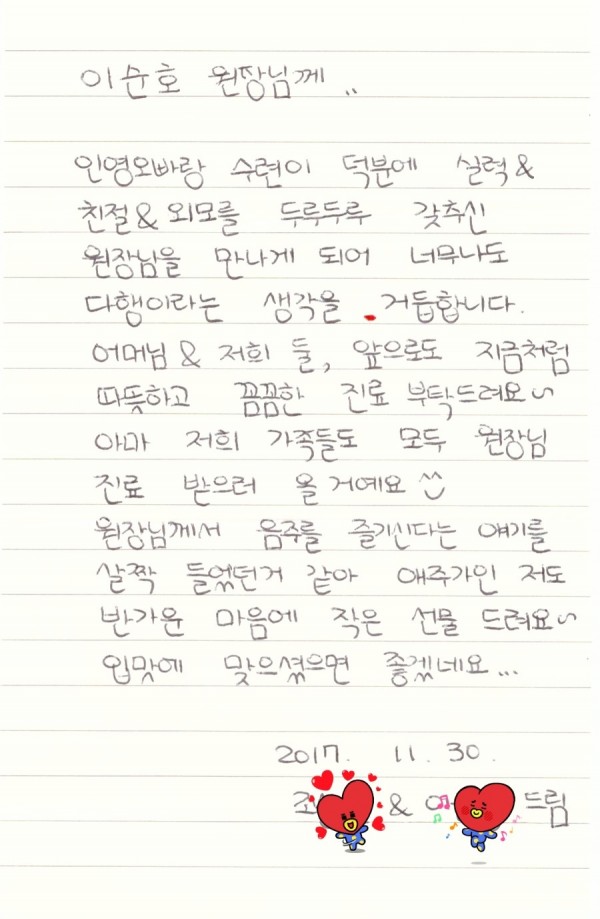 이순호 원장님께..
인영오빠랑 수련이 덕분에 실력&
친절&외모를 두루두루 갖추신
원장님을 만나게 되어 너무나도
다행이라는 생각을 거듭합니다.
어머님 & 저희 둘, 앞으로도 지금처럼
따뜻하고 꼼꼼한 진료 부탁드려요~
아마 저희 가족들도 모두 원장님
진료 받으러 올 거예요
원장님께서 음주를 즐기신다는 얘기를
살짝 들었던거 같아 애주가인 저도
반가운 마음에 작은 선물 드려요~
입맛에 맞으셨으면 좋겠네요...
2017. 11. 30.
& 드림